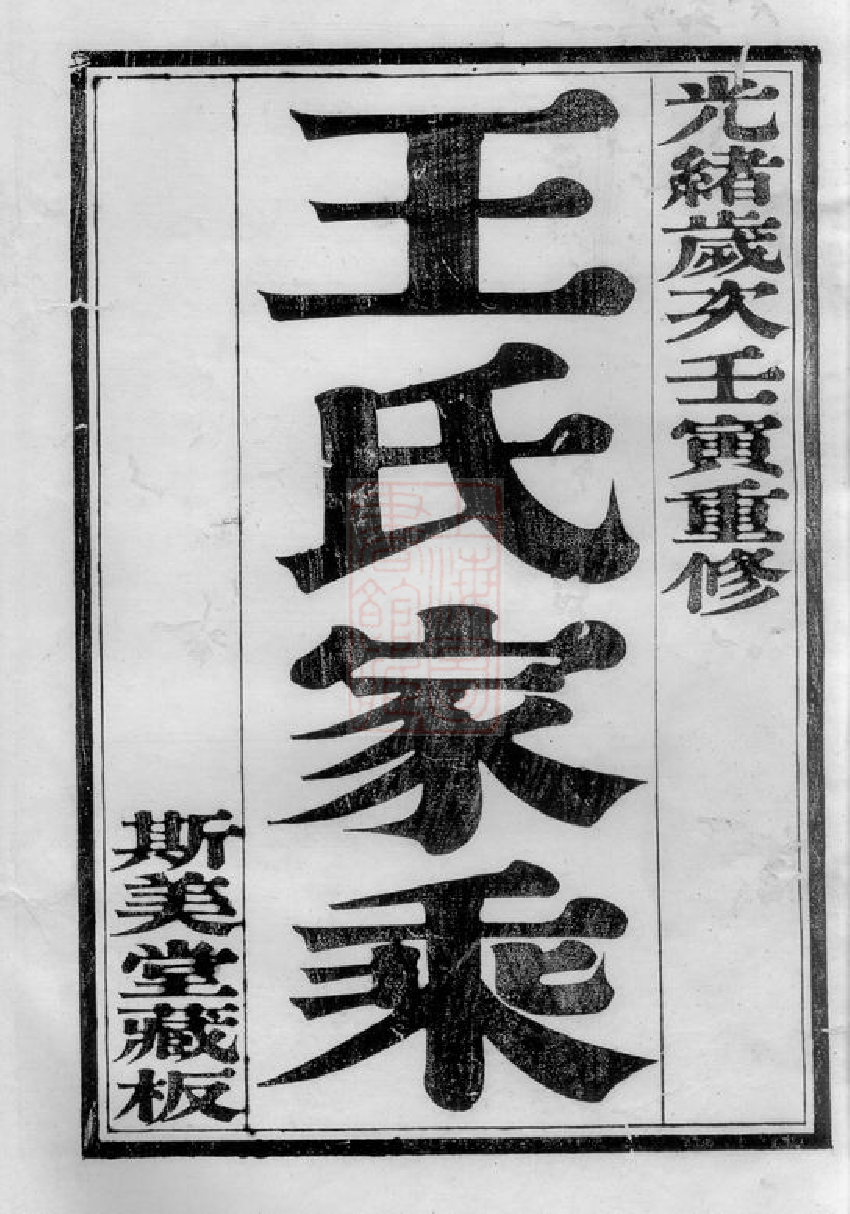 光緒歲次壬寅重修
王氏家乘
斯美堂藏板